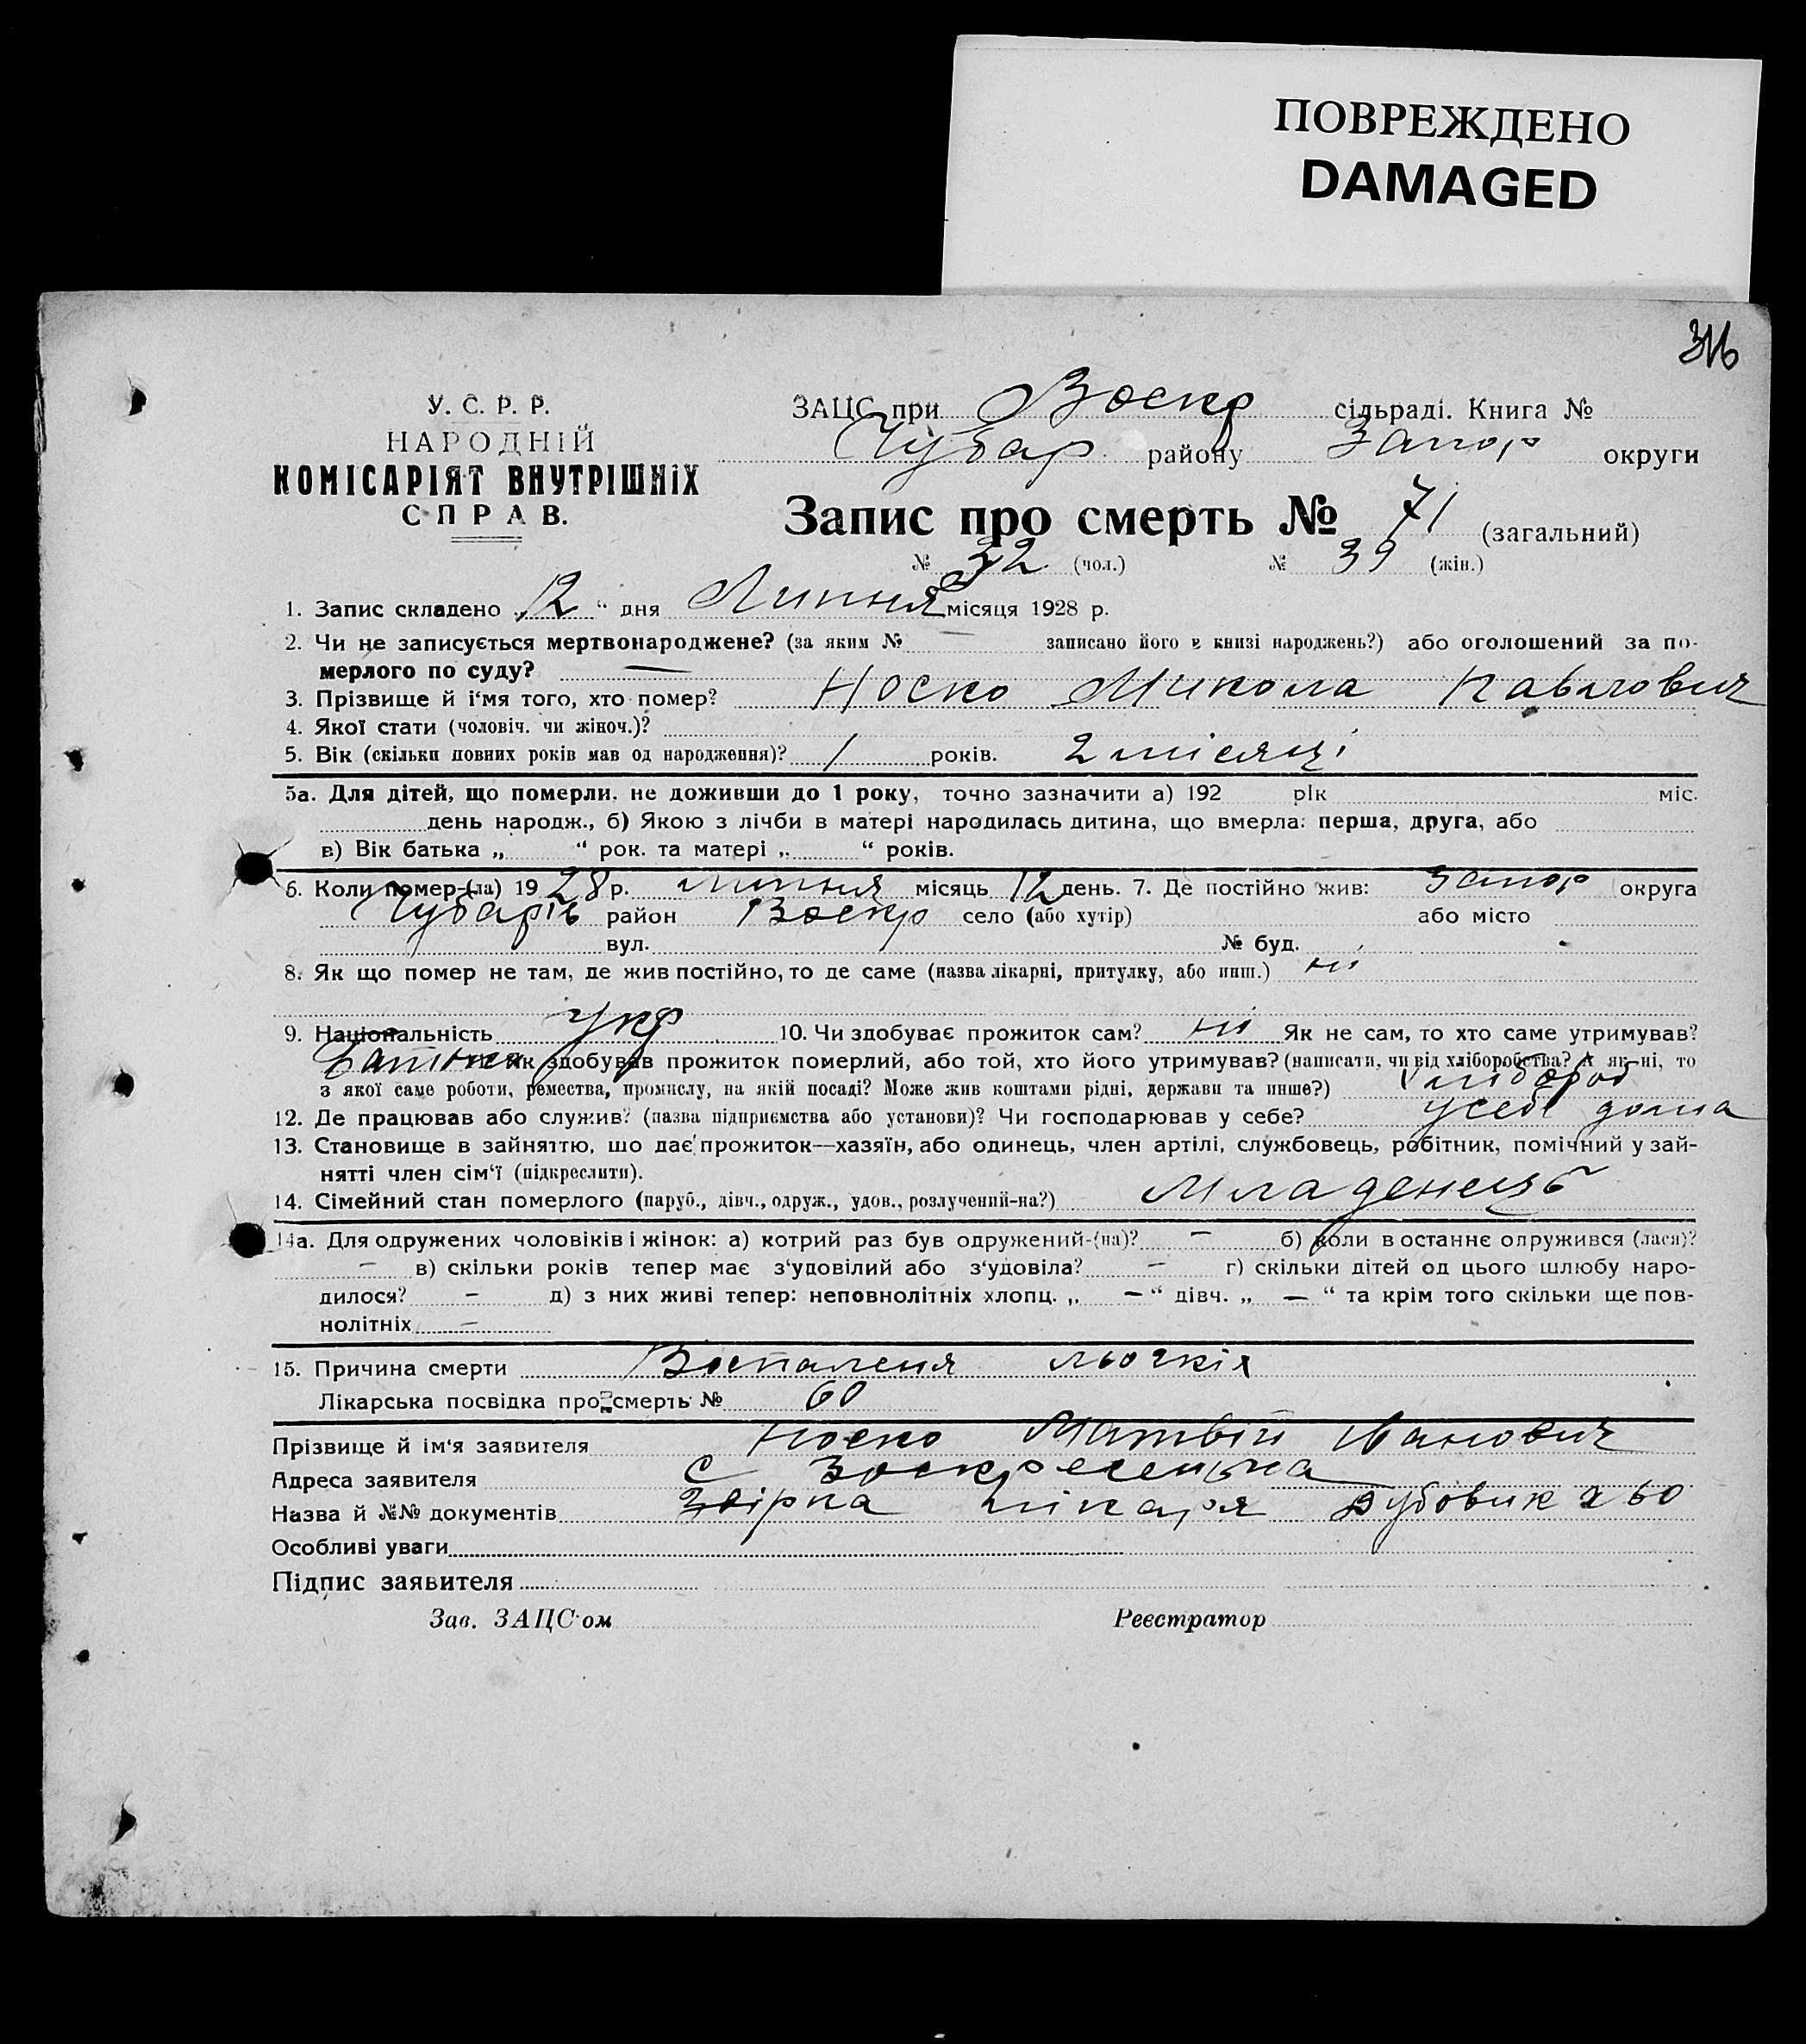 ПОВРЕЖДЕНО
DAMAGED
316
У. С. Р. Р.
НАРОДНІЙ
КОМІСАРІЯТ ВНУТРІШНІХ
СПРАВ.
ЗАЦС при Воскр сільраді. Книга №
Чубар району Запор округи
Запис про смерть № 71 (загальний)
№ 32 (чол.) № 39 (жін.)
1. Запис складено „12“ дня Липня місяця 1928 р.
2. Чи не записується мертвонароджене? (за яким № — записано його в книзі народжень?) або оголошений за по-
мерлого по суду? —
3. Прізвище й і'мя того, хто помер? Носко Микола Павлович
4. Якої стати (чоловіч. чи жіноч.)?
5. Вік (скільки повних років мав од народження)? 1 років. 2 місяці
5а. Для дітей, що померли, не доживши до 1 року, точно зазначити а) 192 рік міс.
день народж., б) Якою з лічби в матері народилась дитина, що вмерла: перша, друга, або
в) Вік батька „ “ рок. та матері „ “ років.
6. Коли помер-(ла) 1928 р. липня місяць 12 день. 7. Де постійно жив: Запор округа
Чубарів район Воскр село (або хутір) або місто
вул. № буд.
8. Як що помер не там, де жив постійно, то де саме (назва лікарні, притулку, або инш.) ні
9. Національність Укр 10. Чи здобуває прожиток сам? ні Як не сам, то хто саме утримував?
Батьки Як здобував прожиток померлий, або той, хто його утримував? (написати, чи від хліборобства? А як ні, то
з якої саме роботи, ремества, промислу, на якій посаді? Може жив коштами рідні, держави та инше?) хлібороб
12. Де працював або служив? (назва підприємства або установи)? Чи господарював у себе? у себе дома
13. Становище в зайняттю, що дає прожиток—хазяїн, або одинець, член артілі, службовець, робітник, помічний у зай-
нятті член сім'ї (підкреслити).
14. Сімейний стан померлого (паруб., дівч., одруж., удов., розлучений-на?) Младенець
14а. Для одружених чоловіків і жінок: а) котрий раз був одружений-(на)? — б) коли в останнє одружився (лася)?
— в) скільки років тепер має з'удовілий або з'удовіла? — г) скільки дітей од цього шлюбу наро-
дилося? — д) з них живі тепер: неповнолітніх хлопц. „ — “ дівч. „ — “ та крім того скільки ще пов-
нолітніх —
15. Причина смерти Воспаленя льогкіх
Лікарська посвідка про смерть № 60
Прізвище й ім'я заявителя Носко Матвій Іванович
Адреса заявителя С Воскресенька
Назва й №№ документів лікаря Дубовик 60
Особливі уваги
Підпис заявителя
Зав. ЗАЦС'ом Реєстратор